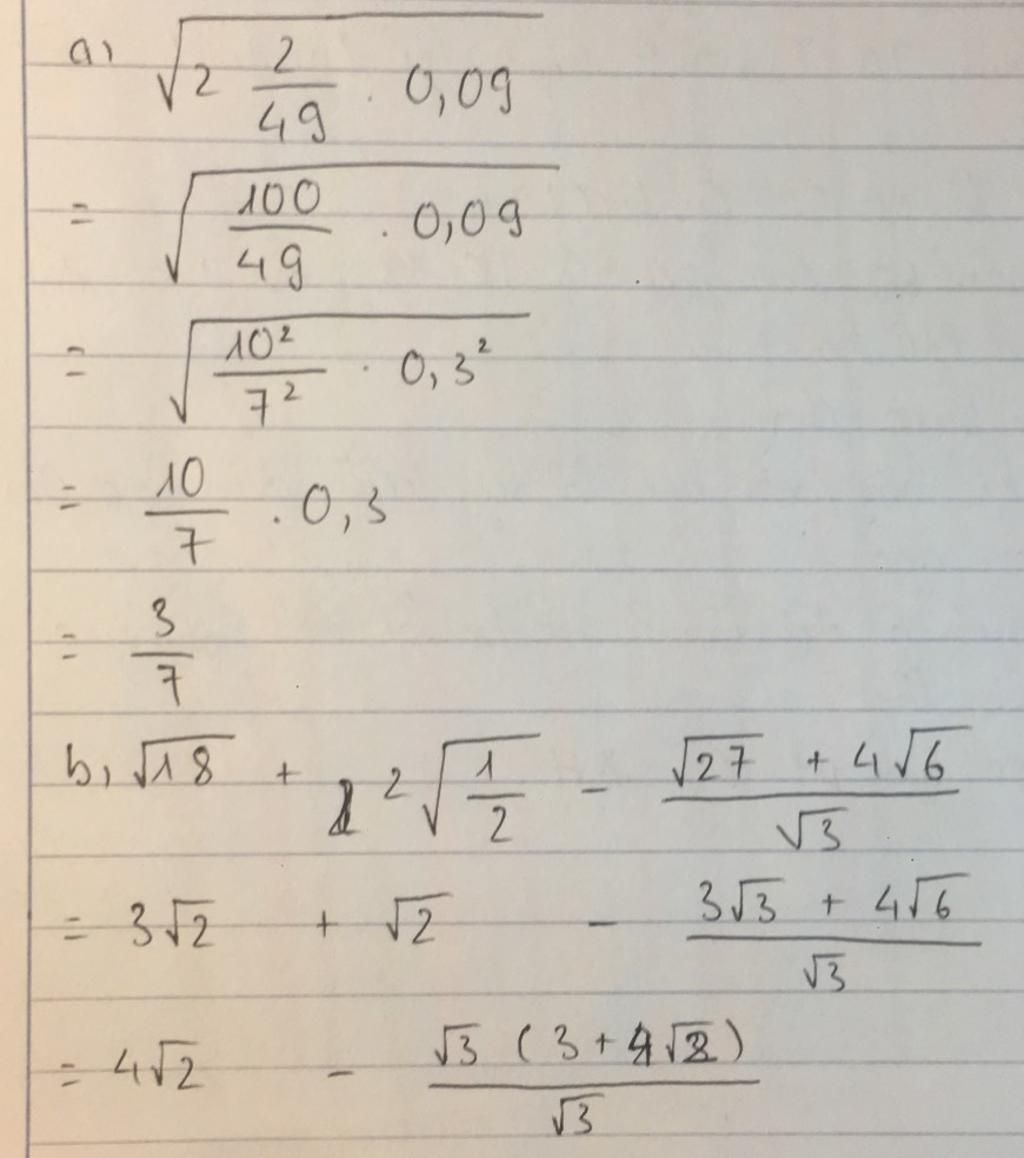 a, √(2 2/49 . 0,09)
= √(100/49 . 0,09)
= √(10²/7² . 0,3²)
= 10/7 . 0,3
= 3/7
b, √18 + 2√(1/2) - (√27 + 4√6)/√3
= 3√2 + √2 - (3√3 + 4√6)/√3
= 4√2 - √3 (3 + 4√2)/√3